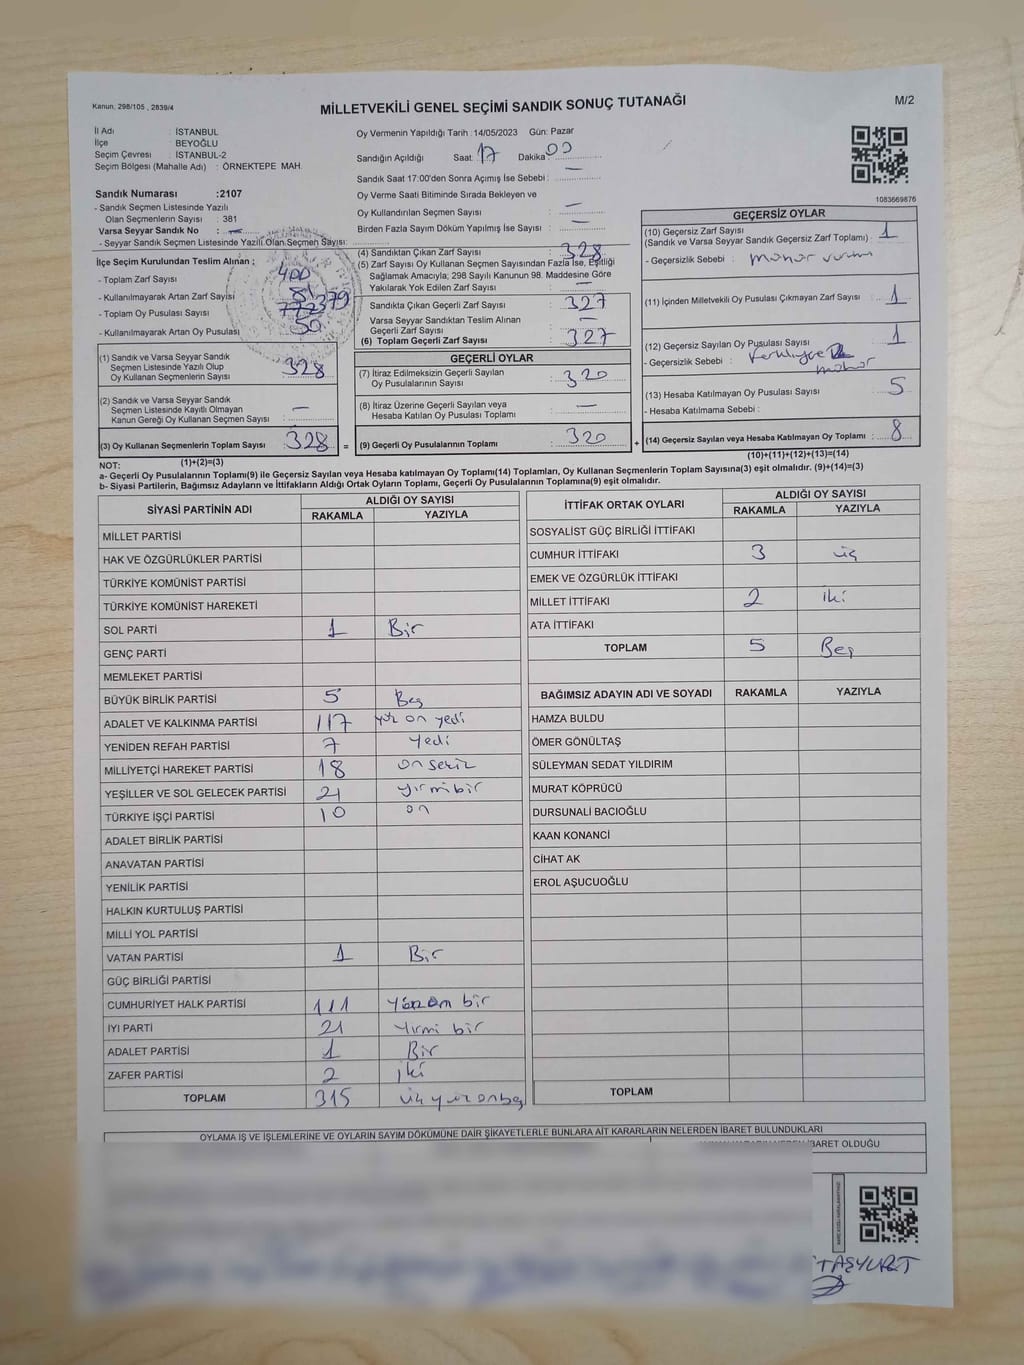 Kanun, 298/105 , 2839/4
MİLLETVEKİLİ GENEL SEÇİMİ SANDIK SONUÇ TUTANAĞI
M/2
İl Adı : İSTANBUL
İlçe : BEYOĞLU
Seçim Çevresi : İSTANBUL-2
Seçim Bölgesi (Mahalle Adı) : ÖRNEKTEPE MAH.
Sandık Numarası :2107
- Sandık Seçmen Listesinde Yazılı
Olan Seçmenlerin Sayısı : 381
Varsa Seyyar Sandık No : —
- Seyyar Sandık Seçmen Listesinde Yazılı Olan Seçmen Sayısı:
İlçe Seçim Kurulundan Teslim Alınan ;
- Toplam Zarf Sayısı 400
- Kullanılmayarak Artan Zarf Sayısı
- Toplam Oy Pusulası Sayısı 379
- Kullanılmayarak Artan Oy Pusulası 50
(1) Sandık ve Varsa Seyyar Sandık
Seçmen Listesinde Yazılı Olup
Oy Kullanan Seçmenlerin Sayısı 328
(2) Sandık ve Varsa Seyyar Sandık
Seçmen Listesinde Kayıtlı Olmayan
Kanun Gereği Oy Kullanan Seçmen Sayısı —
(3) Oy Kullanan Seçmenlerin Toplam Sayısı 328 =
(1)+(2)=(3)
Oy Vermenin Yapıldığı Tarih : 14/05/2023 Gün: Pazar
Sandığın Açıldığı Saat: 17 Dakika: 00
Sandık Saat 17:00'den Sonra Açımış İse Sebebi : —
Oy Verme Saati Bitiminde Sırada Bekleyen ve
Oy Kullandırılan Seçmen Sayısı —
Birden Fazla Sayım Döküm Yapılmış İse Sayısı : —
(4) Sandıktan Çıkan Zarf Sayısı 328
(5) Zarf Sayısı Oy Kullanan Seçmen Sayısından Fazla İse, Eşitliği
Sağlamak Amacıyla; 298 Sayılı Kanunun 98. Maddesine Göre
Yakılarak Yok Edilen Zarf Sayısı —
Sandıkta Çıkan Geçerli Zarf Sayısı 327
Varsa Seyyar Sandıktan Teslim Alınan
Geçerli Zarf Sayısı —
(6) Toplam Geçerli Zarf Sayısı 327
GEÇERLİ OYLAR
(7) İtiraz Edilmeksizin Geçerli Sayılan
Oy Pusulalarının Sayısı 320
(8) İtiraz Üzerine Geçerli Sayılan veya
Hesaba Katılan Oy Pusulası Toplamı —
(9) Geçerli Oy Pusulalarının Toplamı 320 +
1083669876
GEÇERSİZ OYLAR
(10) Geçersiz Zarf Sayısı 1
(Sandık ve Varsa Seyyar Sandık Geçersiz Zarf Toplamı)
- Geçersizlik Sebebi :
(11) İçinden Milletvekili Oy Pusulası Çıkmayan Zarf Sayısı 1
(12) Geçersiz Sayılan Oy Pusulası Sayısı 1
- Geçersizlik Sebebi :
(13) Hesaba Katılmayan Oy Pusulası Sayısı 5
- Hesaba Katılmama Sebebi :
(14) Geçersiz Sayılan veya Hesaba Katılmayan Oy Toplamı : 8
(10)+(11)+(12)+(13)=(14)
NOT:
a- Geçerli Oy Pusulalarının Toplamı(9) ile Geçersiz Sayılan veya Hesaba katılmayan Oy Toplamı(14) Toplamları, Oy Kullanan Seçmenlerin Toplam Sayısına(3) eşit olmalıdır. (9)+(14)=(3)
b- Siyasi Partilerin, Bağımsız Adayların ve İttifakların Aldığı Ortak Oyların Toplamı, Geçerli Oy Pusulalarının Toplamına(9) eşit olmalıdır.
SİYASİ PARTİNİN ADI ALDIĞI OY SAYISI
RAKAMLA YAZIYLA
MİLLET PARTİSİ
HAK VE ÖZGÜRLÜKLER PARTİSİ
TÜRKİYE KOMÜNİST PARTİSİ
TÜRKİYE KOMÜNİST HAREKETİ
SOL PARTİ 1 Bir
GENÇ PARTİ
MEMLEKET PARTİSİ
BÜYÜK BİRLİK PARTİSİ 5 Beş
ADALET VE KALKINMA PARTİSİ 117 yüz on yedi
YENİDEN REFAH PARTİSİ 7 yedi
MİLLİYETÇİ HAREKET PARTİSİ 18 on sekiz
YEŞİLLER VE SOL GELECEK PARTİSİ 21 yirmi bir
TÜRKİYE İŞÇİ PARTİSİ 10 on
ADALET BİRLİK PARTİSİ
ANAVATAN PARTİSİ
YENİLİK PARTİSİ
HALKIN KURTULUŞ PARTİSİ
MİLLİ YOL PARTİSİ
VATAN PARTİSİ 1 Bir
GÜÇ BİRLİĞİ PARTİSİ
CUMHURİYET HALK PARTİSİ 111 yüz on bir
İYİ PARTİ 21 yirmi bir
ADALET PARTİSİ 1 Bir
ZAFER PARTİSİ 2 iki
TOPLAM 315 üçyüzonbeş
İTTİFAK ORTAK OYLARI ALDIĞI OY SAYISI
RAKAMLA YAZIYLA
SOSYALİST GÜÇ BİRLİĞİ İTTİFAKI
CUMHUR İTTİFAKI 3 üç
EMEK VE ÖZGÜRLÜK İTTİFAKI
MİLLET İTTİFAKI 2 iki
ATA İTTİFAKI
TOPLAM 5 Beş
BAĞIMSIZ ADAYIN ADI VE SOYADI RAKAMLA YAZIYLA
HAMZA BULDU
ÖMER GÖNÜLTAŞ
SÜLEYMAN SEDAT YILDIRIM
MURAT KÖPRÜCÜ
DURSUNALİ BACIOĞLU
KAAN KONANCİ
CİHAT AK
EROL AŞUCUOĞLU
TOPLAM
OYLAMA İŞ VE İŞLEMLERİNE VE OYLARIN SAYIM DÖKÜMÜNE DAİR ŞİKAYETLERLE BUNLARA AİT KARARLARIN NELERDEN İBARET BULUNDUKLARI
İBARET OLDUĞU
TAŞYURT